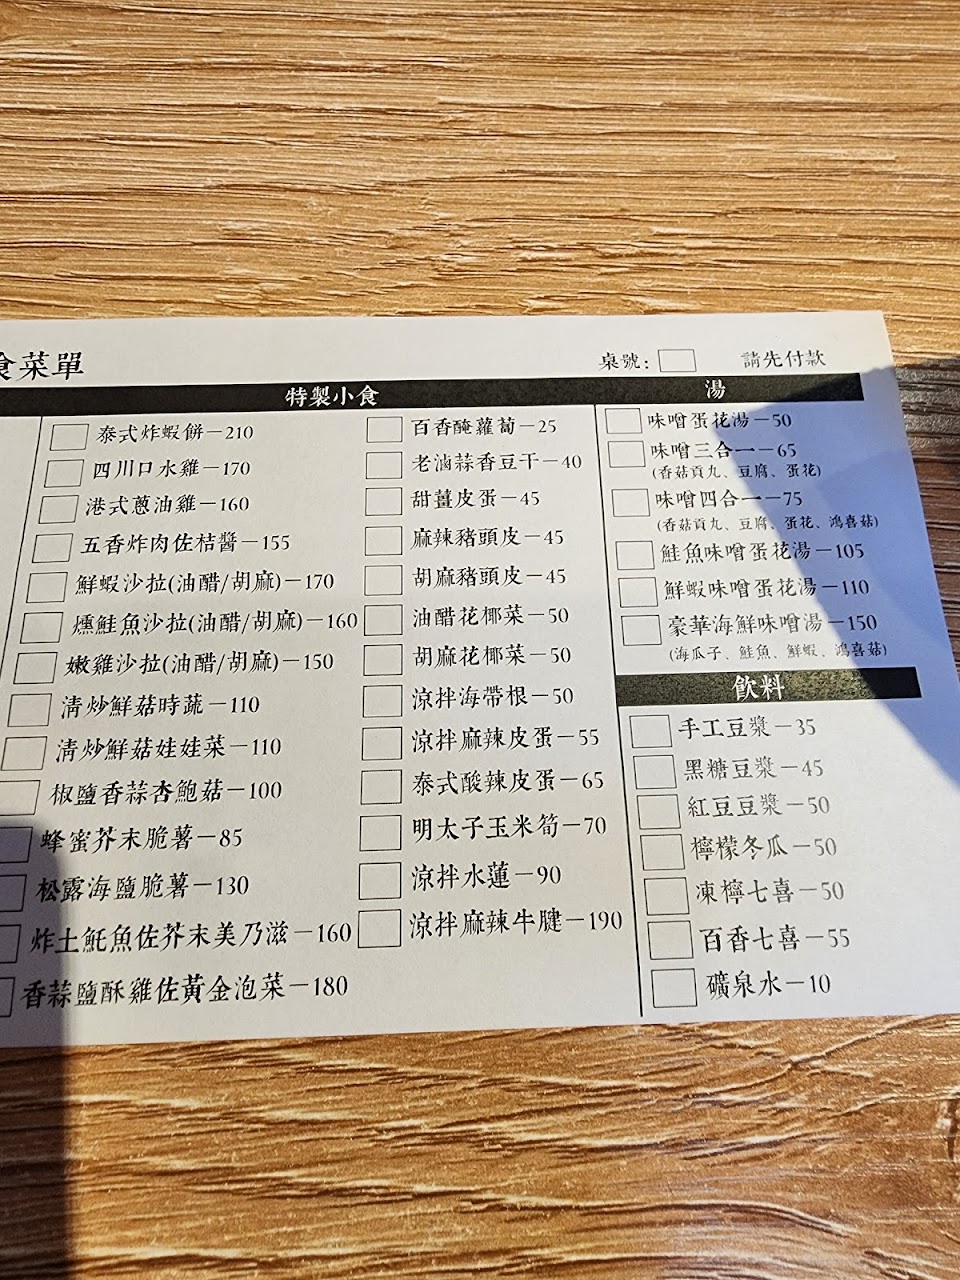 食菜單
桌號:
請先付款
特製小食
泰式炸蝦餅－210
四川口水雞－170
港式蔥油雞－160
五香炸肉佐桔醬－155
鮮蝦沙拉(油醋/胡麻)－170
燻鮭魚沙拉(油醋/胡麻)－160
嫩雞沙拉(油醋/胡麻)－150
清炒鮮菇時蔬－110
清炒鮮菇娃娃菜－110
椒鹽香蒜杏鮑菇－100
蜂蜜芥末脆薯－85
松露海鹽脆薯－130
炸土魠魚佐芥末美乃滋－160
香蒜鹽酥雞佐黃金泡菜－180
百香醃蘿蔔－25
老滷蒜香豆干－40
甜薑皮蛋－45
麻辣豬頭皮－45
胡麻豬頭皮－45
油醋花椰菜－50
胡麻花椰菜－50
涼拌海帶根－50
涼拌麻辣皮蛋－55
泰式酸辣皮蛋－65
明太子玉米筍－70
涼拌水蓮－90
涼拌麻辣牛腱－190
湯
味噌蛋花湯－50
味噌三合一－65
(香菇貢丸、豆腐、蛋花)
味噌四合一－75
(香菇貢丸、豆腐、蛋花、鴻喜菇)
鮭魚味噌蛋花湯－105
鮮蝦味噌蛋花湯－110
豪華海鮮味噌湯－150
(海瓜子、鮭魚、鮮蝦、鴻喜菇)
飲料
手工豆漿－35
黑糖豆漿－45
紅豆豆漿－50
檸檬冬瓜－50
凍檸七喜－50
百香七喜－55
礦泉水－10